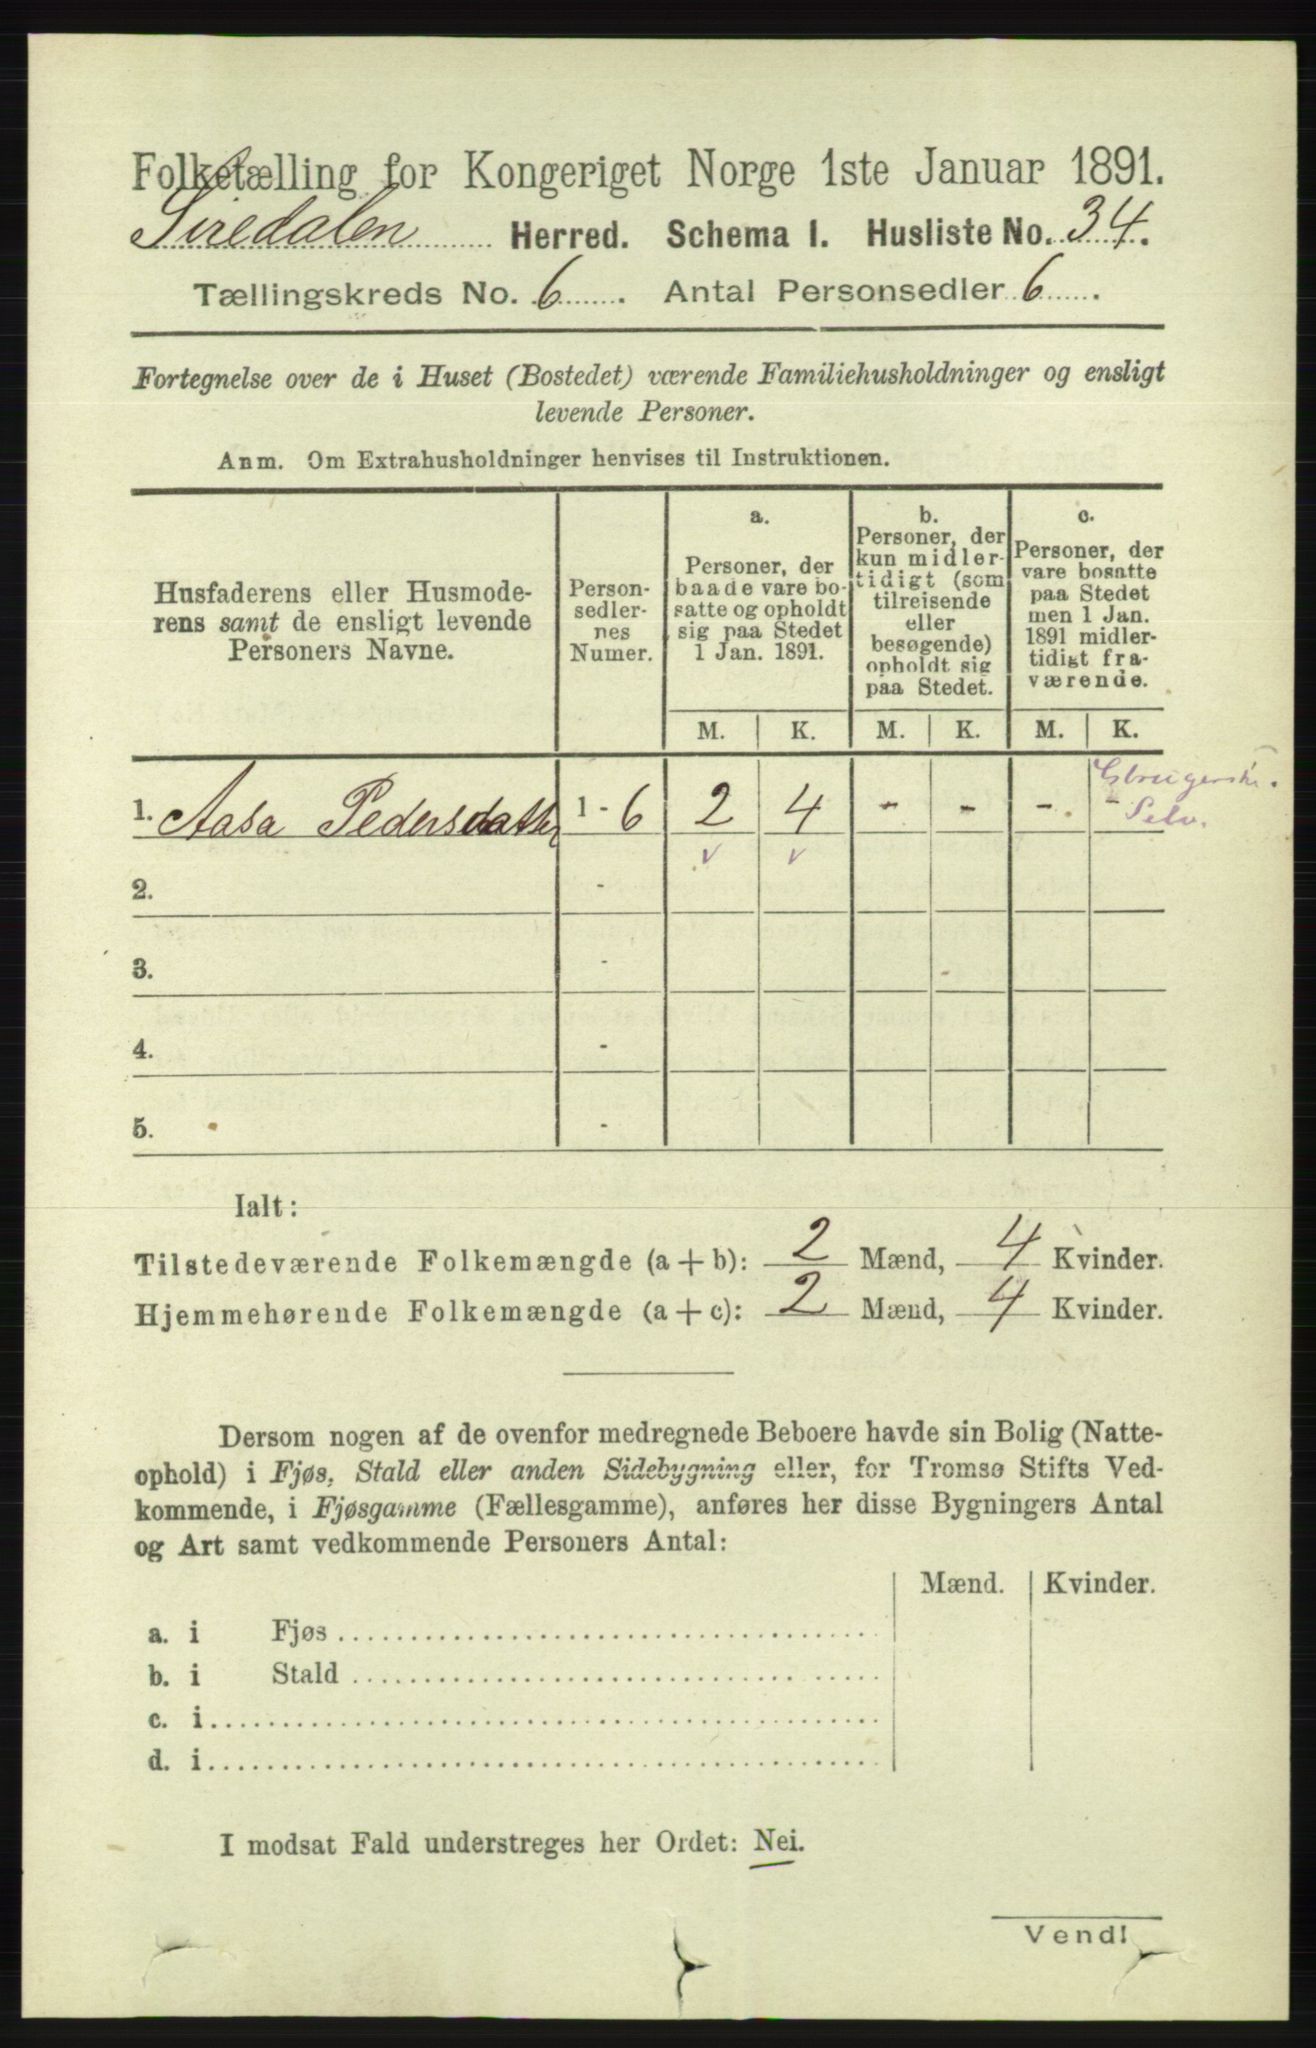 Folketælling for Kongeriget Norge 1ste Januar 1891.
Siredalen Herred. Schema I. Husliste No. 34.
Tællingskreds No. 6. Antal Personsedler 6.
Fortegnelse over de i Huset (Bostedet) værende Familiehusholdninger og ensligt
levende Personer.
Anm. Om Extrahusholdninger henvises til Instruktionen.
Husfaderens eller Husmode-
rens samt de ensligt levende
Personers Navne.
Person-
sedler-
nes
Numer.
a.
Personer, der
baade vare bo-
satte og opholdt
sig paa Stedet
1 Jan. 1891.
b.
Personer, der
kun midler-
tidigt (som
tilreisende
eller
besøgende)
opholdt sig
paa Stedet.
c.
Personer, der
vare bosatte
paa Stedet
men 1 Jan.
1891 midler-
tidigt fra-
værende.
M. K. M. K. M. K.
1. Aasa Pedersdatter 1 - 6 2 4 - - - -
Selv.
v v
2. -
3. -
4. -
5. -
Ialt:
Tilstedeværende Folkemængde (a + b): 2 Mænd, 4 Kvinder.
Hjemmehørende Folkemængde (a + c): 2 Mænd, 4 Kvinder.
Dersom nogen af de ovenfor medregnede Beboere havde sin Bolig (Natte-
ophold) i Fjøs, Stald eller anden Sidebygning eller, for Tromsø Stifts Ved-
kommende, i Fjøsgamme (Fællesgamme), anføres her disse Bygningers Antal
og Art samt vedkommende Personers Antal:
Mænd. Kvinder.
a. i Fjøs
b. i Stald
c. i
d. i
I modsat Fald understreges her Ordet: Nei.
Vend!